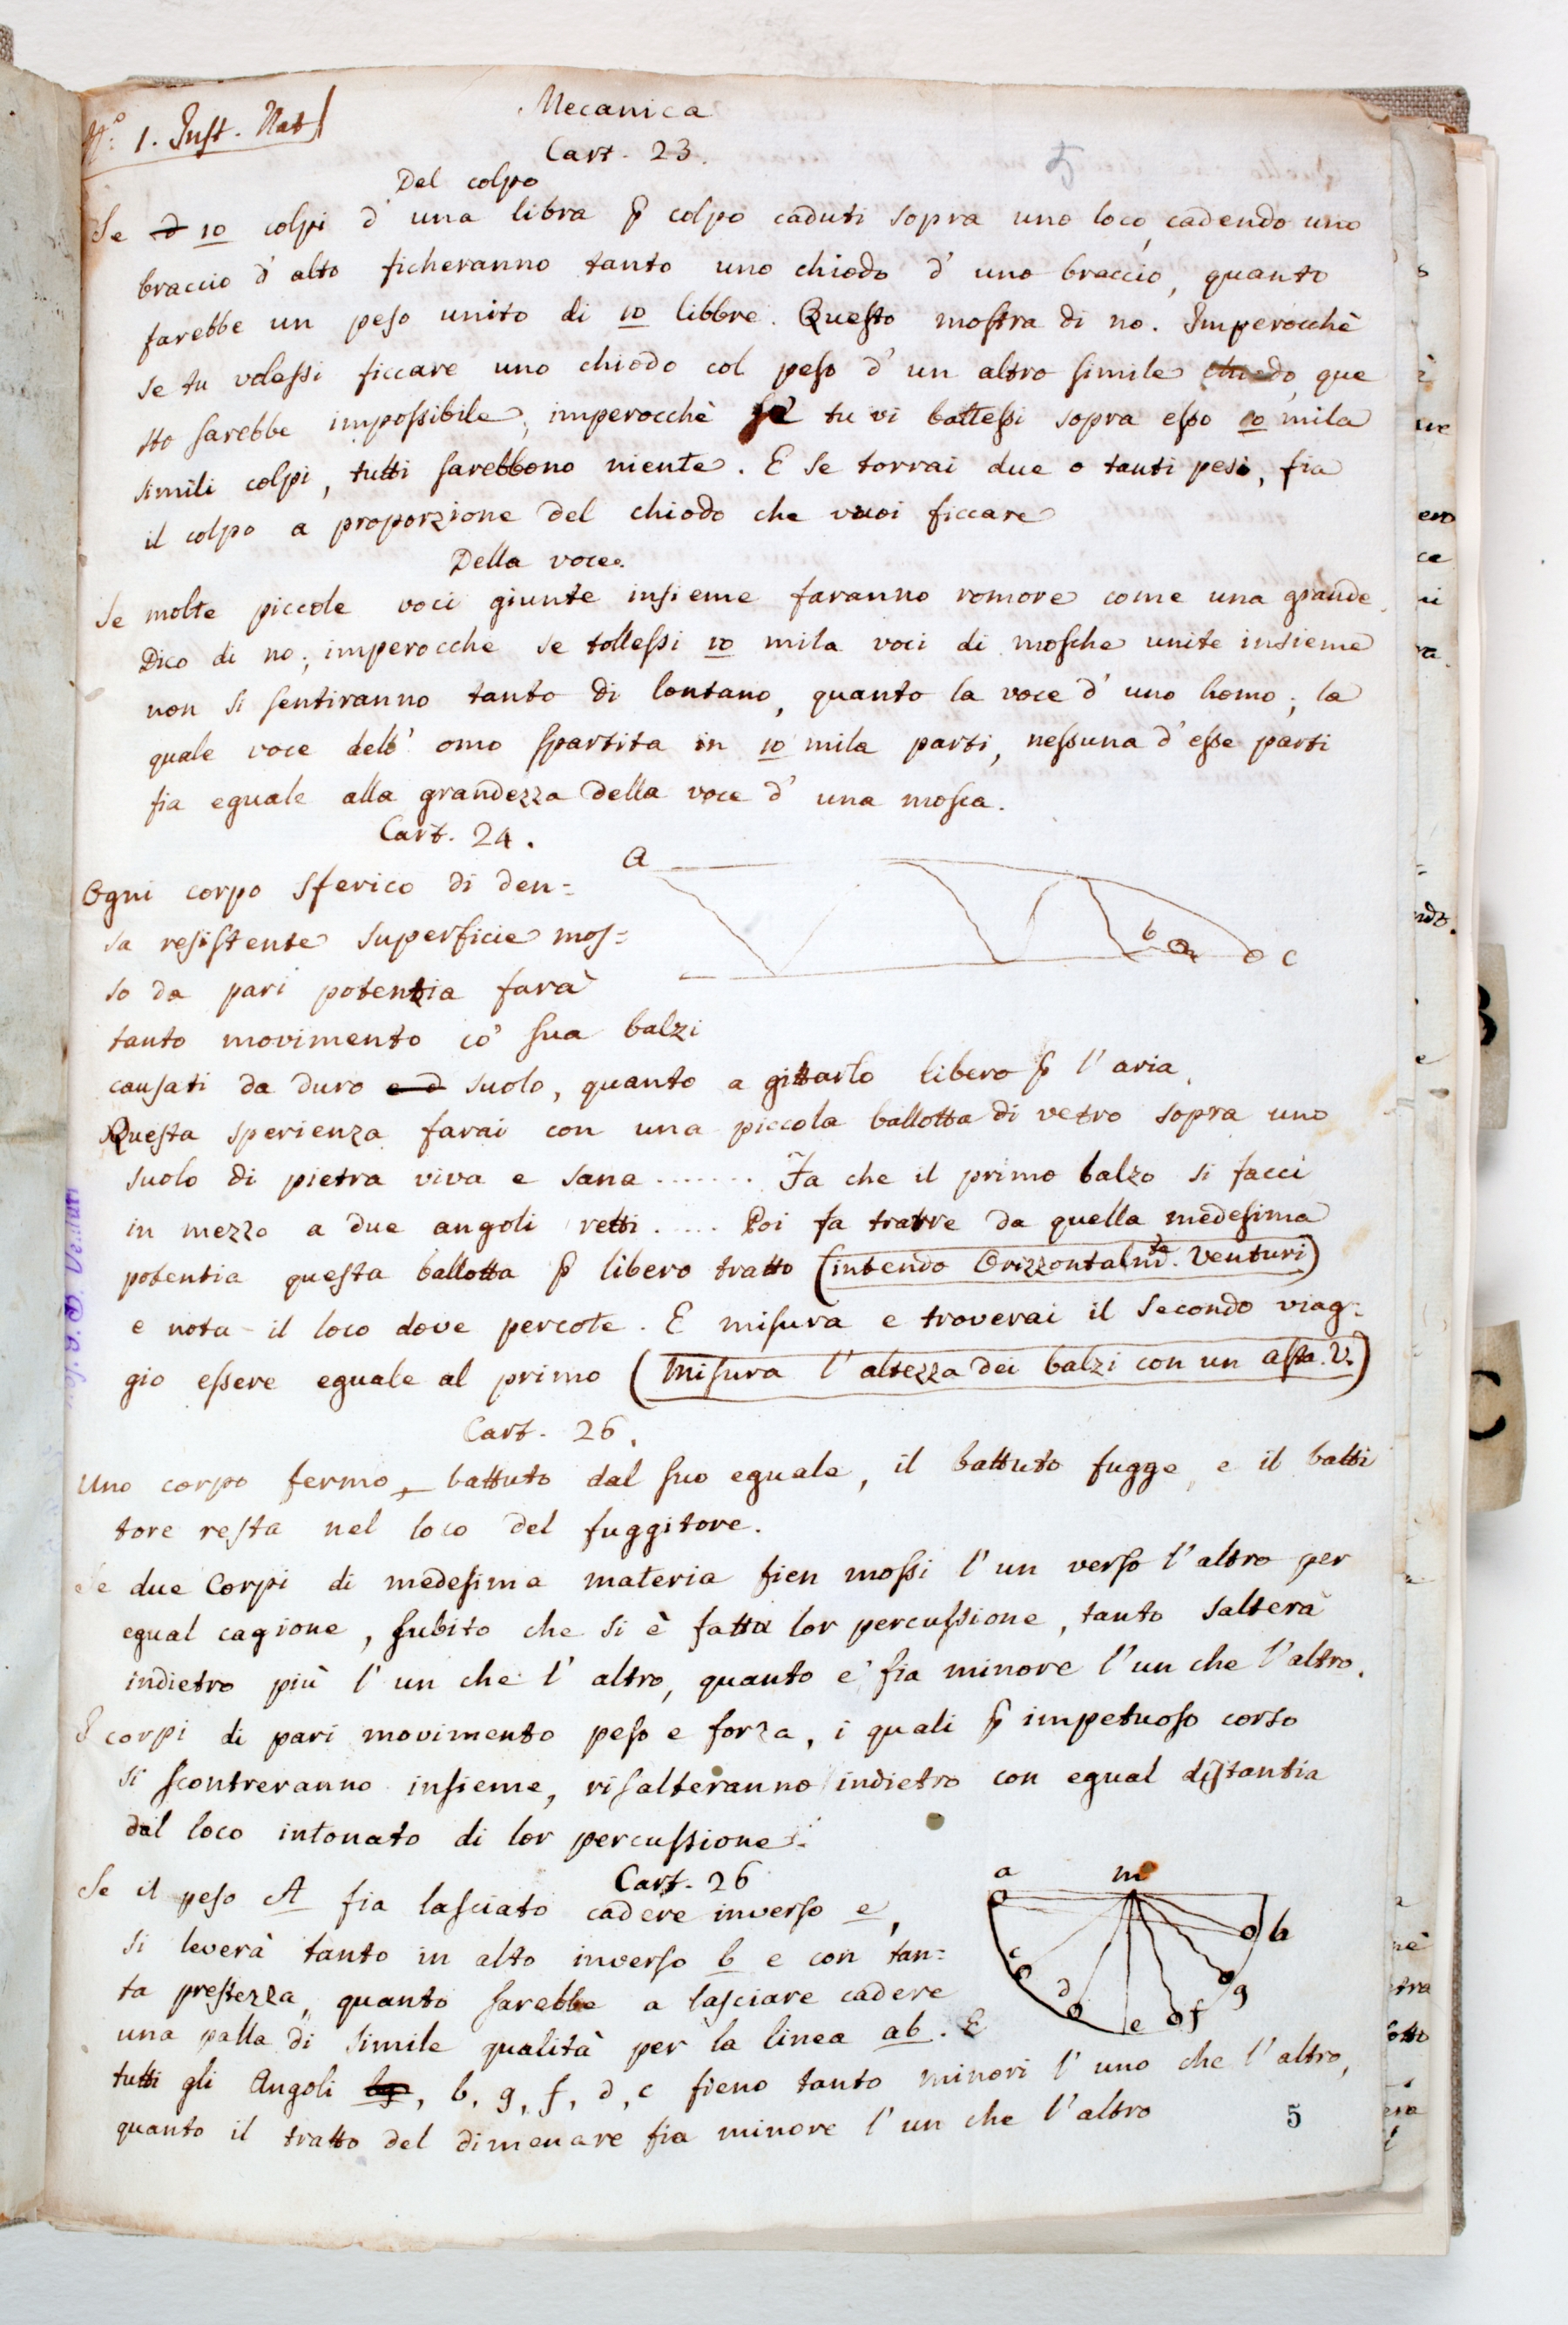 N.º 1. Inst. Nat.
Mecanica
Cart. 23.
5
Del colpo
Se d 10 colpi d' una libra p colpo caduti sopra uno loco, cadendo uno
braccio d' alto ficheranno tanto uno chiodo d' uno braccio, quanto
farebbe un peso unito di 10 libbre. Questo mostra di no. Imperocchè
se tu volessi ficcare uno chiodo col peso d' un altro simile chiodo, que
sto sarebbe impossibile; imperocchè se tu vi battessi sopra esso 10 mila
simili colpi, tutti sarebbono niente. E se torrai due o tanti pesi, fia
il colpo a proporzione del chiodo che vuoi ficcare
Della voce.
Se molte piccole voci giunte insieme faranno romore come una grande.
Dico di no; imperocche se tollessi 10 mila voci di mosche unite insieme
non si sentiranno tanto di lontano, quanto la voce d' uno homo; la
quale voce dell' omo spartita in 10 mila parti, nessuna d' esse parti
fia eguale alla grandezza della voce d' una mosca.
Cart. 24.
a
b
c
Ogni corpo sferico di den=
sa resistente superficie mos=
so da pari potentia farà
tanto movimento co' sua balzi
causati da duro e d suolo, quanto a gittarlo libero p l' aria.
Questa sperienza farai con una piccola ballotta di vetro sopra uno
suolo di pietra viva e sana ....... Fa che il primo balzo si facci
in mezzo a due angoli retti ..... Poi fa trarre da quella medesima
potentia questa ballotta p libero tratto (intendo Orizzontalm.te Venturi)
e nota il loco dove percote. E misura e troverai il secondo viag=
gio essere eguale al primo (Misura l' altezza dei balzi con un asta. V.)
Cart. 26.
Uno corpo fermo, battuto dal suo eguale, il battuto fugge, e il batti
tore resta nel loco del fuggitore.
Se due Corpi di medesima materia fien mossi l' un verso l' altro per
egual cagione, subito che si è fatta lor percussione, tanto salterà
indietro più l' un che l' altro, quanto e' fia minore l' un che l' altro.
I corpi di pari movimento peso e forza, i quali p impetuoso corso
si scontreranno insieme, risalteranno indietro con egual distantia
dal loco intonato di lor percussione.
Cart. 26
Se il peso A fia lasciato cadere inverso e,
si leverà tanto in alto inverso b e con tan=
ta prestezza, quanto sarebbe a lasciare cadere
una palla di simile qualità per la linea ab. E
tutti gli Angoli bg, b, g, f, d, c fieno tanto minori l' uno che l' altro,
quanto il tratto del dimenare fia minore l' un che l' altro
a
m
b
c
d
e
f
g
5